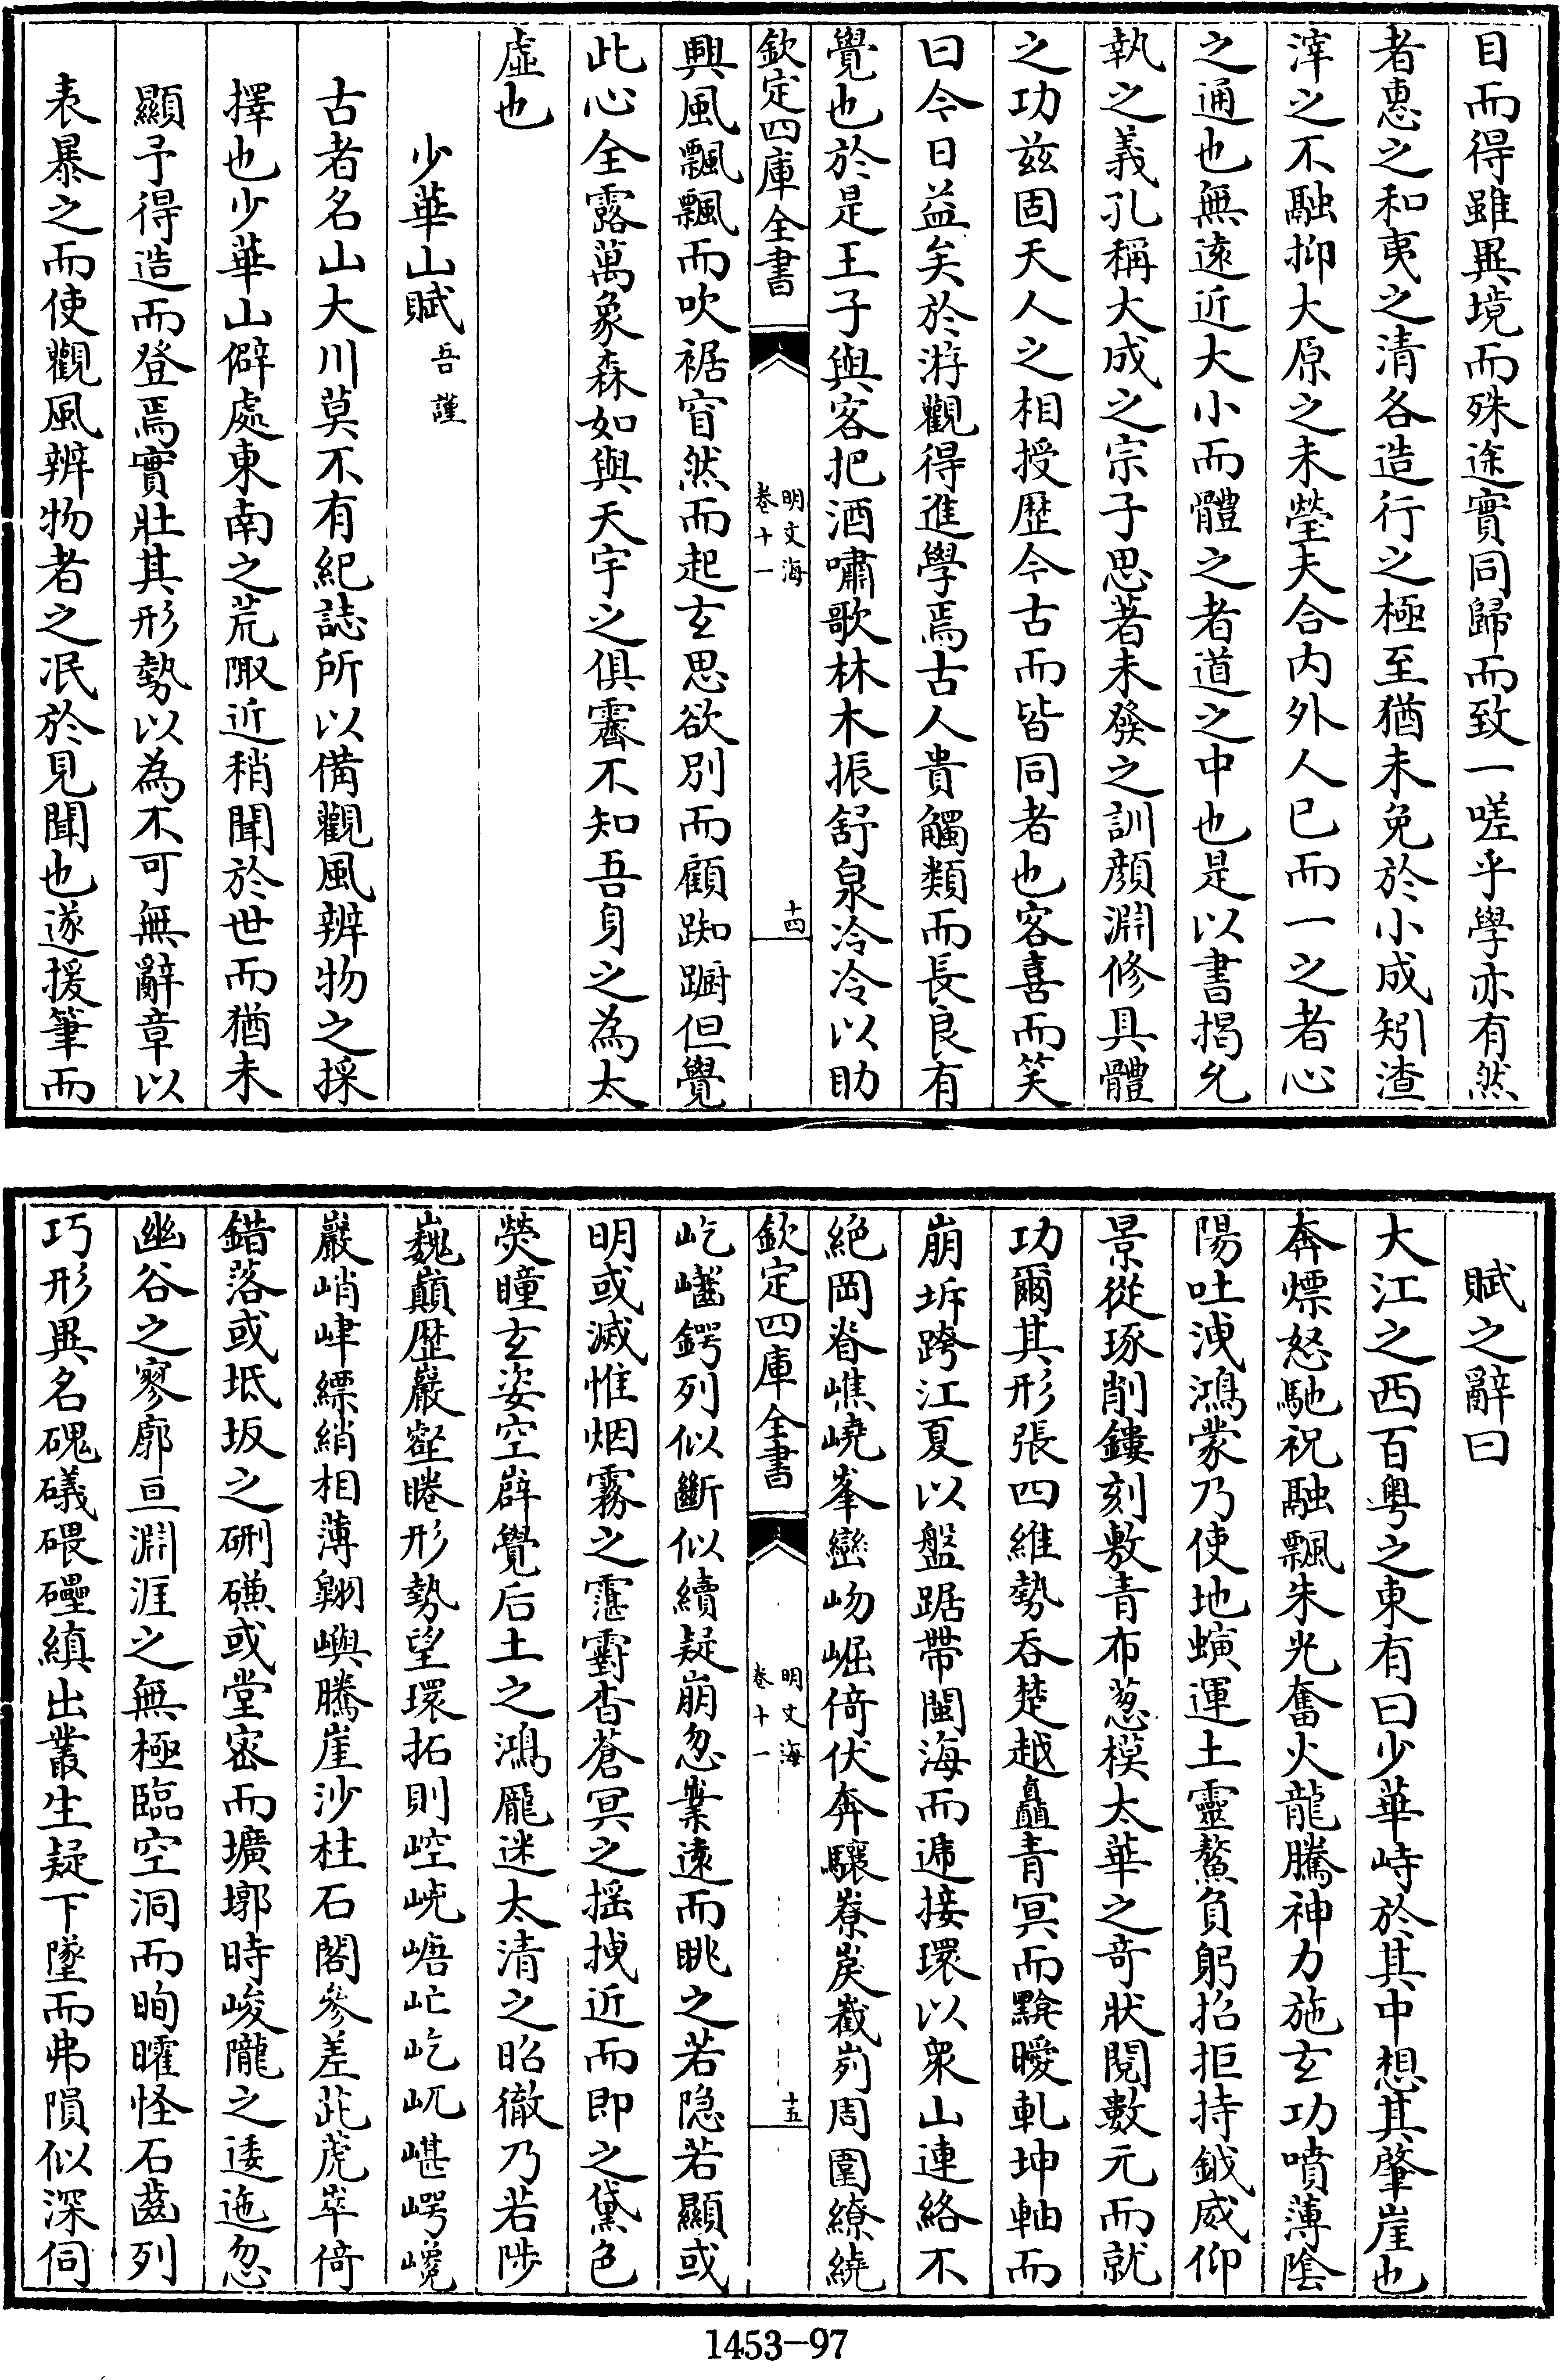 目而得雖異境而殊途實同歸而致一嗟乎學亦有然
者惠之和夷之清各造行之極至猶未免於小成矧渣
滓之不融抑大原之未瑩夫合内外人已而一之者心
之通也無逺近大小而體之者道之中也是以書揭允
執之義孔稱大成之宗子思著未發之訓顔淵修具體
之功兹固天人之相授歴今古而皆同者也客喜而笑
曰今日益矣於游觀得進學焉古人貴觸類而長良有
覺也於是王子與客把酒嘯歌林木振舒泉冷冷以助
欽定四庫全書
明文海
卷十一
十四
興風飄飄而吹裾窅然而起玄思欲別而顧踟蹰但覺
此心全露萬象森如與天宇之俱霽不知吾身之為太
虚也
少華山賦 吾謹
古者名山大川莫不有紀誌所以備觀風辨物之採
擇也少華山僻處東南之荒陬近稍聞於世而猶未
顯予得造而登焉實壯其形勢以為不可無辭章以
表暴之而使觀風辨物者之冺於見聞也遂援筆而
賦之辭曰
大江之西百粤之東有曰少華峙於其中想其肇崖也
奔熛怒馳祝融飄朱光奮火龍騰神力施玄功噴薄陰
陽吐洩鴻蒙乃使地螾運土靈鰲負躬招拒持鉞威仰
景從琢削鏤刻敷青布葱模太華之奇狀閱數元而就
功爾其形張四維勢吞楚越矗青冥而黕曖軋坤軸而
崩坼跨江夏以盤踞帶閩海而遞接環以衆山連絡不
絶岡脊嶕嶢峯巒岉崛倚伏奔驤嶚嶻峛周圍繚繞
欽定四庫全書
明文海
卷十一
十五
屹㠢鍔列似斷似續疑崩忽嶪逺而眺之若隐若顯或
明或滅惟烟霧之霮䨴杳蒼冥之揺拽近而即之黛色
熒瞳玄姿空辟覺后土之鴻厖迷太清之昭徹乃若陟
巍巔歴巖壑睠形勢望環拓則崆㟅峿屹屼嵁崿巉
巖峭峍縹綃相薄翱嶼騰崖沙柱石閣參差茈虒崒倚
錯落或坻坂之硎磏或堂密而壙墎時峻隴之逶迤忽
幽谷之寥廓亘淵涯之無極臨空洞而眴矐怪石齒列
巧形異名磈礒碨礧縝出叢生疑下墜而弗隕似深伺
1453-97